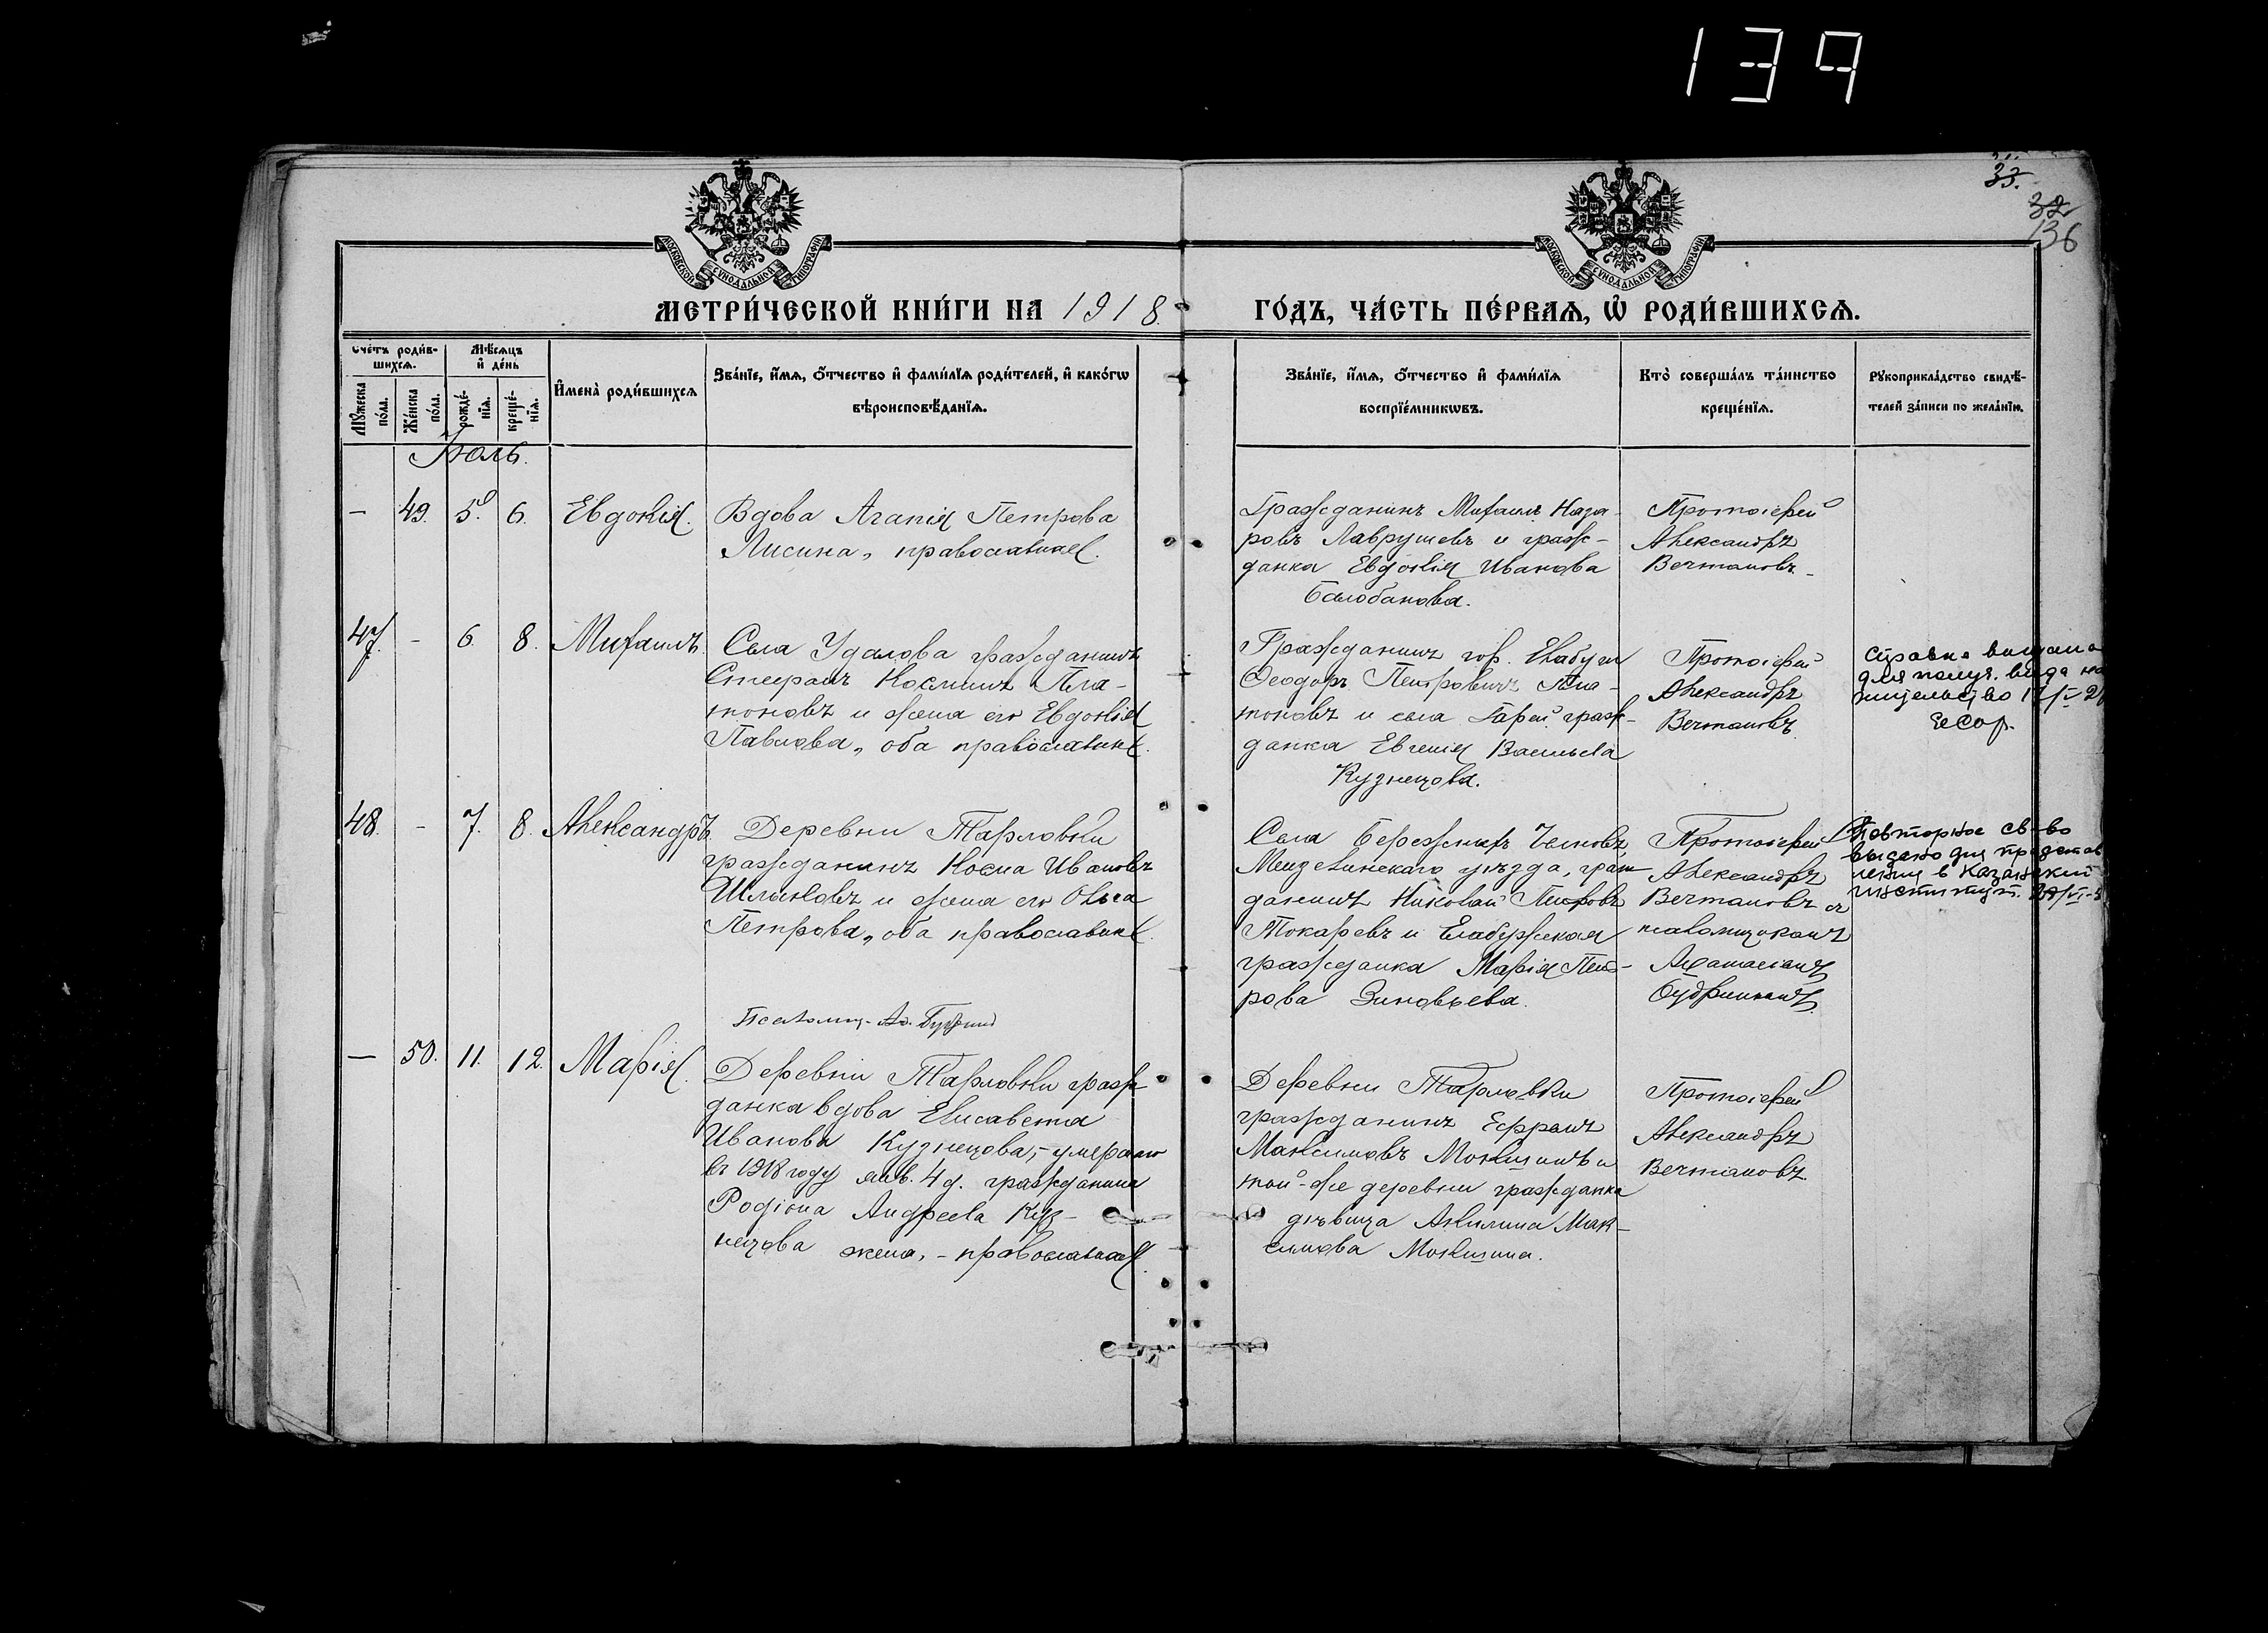 139
33.
32
136
МОСКОВСКОЙ СѴНОДАЛЬНОЙ ТИПОГРАФІИ
МОСКОВСКОЙ СѴНОДАЛЬНОЙ ТИПОГРАФІИ
МЕТРИ́ЧЕСКОЙ КНИ́ГИ НА 1918
ГО́ДЪ, ЧА́СТЬ ПЕ́РВАѦ, Ѡ҆ РОДИ́ВШИХСѦ.
Сче́тъ роди́в-
шихсѧ.
Мꙋ́жеска по́ла.
Же́нска по́ла.
Мѣ́сѧцъ
и҆ де́нь
рожде́-нїѧ.
креще́-нїѧ.
И҆мена̀ роди́вшихсѧ
Зва́нїе, и҆́мѧ, ѻ҆́тчество и҆ фами́лїѧ роди́телей, и҆ како́гѡ
вѣроисповѣ́данїѧ.
Зва́нїе, и҆́мѧ, ѻ҆́тчество и҆ фами́лїѧ
воспрїе́мникѡвъ.
Кто̀ соверша́лъ та́инство
креще́нїѧ.
Рꙋкоприкла́дство свидѣ́-
телей за́писи по жела́нїю.
Іюль.
— 49. 5. 6. Евдокія.
Вдова Агапія Петрова
Лисина, православная.
Гражданинъ Михаилъ Наза-
ровъ Лаврушевъ и граж-
данка Евдокія Иванова
Балобанова.
Протоіерей
Александръ
Вечтомовъ
47. - 6. 8. Михаилъ.
Села Удалова гражданинъ
Стефанъ Косминъ Пла-
тоновъ и жена его Евдокія
Павлова, оба православные.
Гражданинъ гор. Елабуги
Ѳеодоръ Петровичъ Пла-
тоновъ и села Гарей граж-
данка Евгенія Васильева
Кузнецова.
Протоіерей
Александръ
Вечтомовъ.
Справка выдана
для получ. вида на
жительство
48. - 7. 8. Александръ.
Деревни Тарловки
гражданинъ Косма Ивановъ
Шлаковъ и жена его Ольга
Петрова, оба православные.
Села Бережныхъ Челновъ,
Мензелинскаго уѣзда, граж-
данинъ Николай Петровъ
Токаревъ и Елабужская
гражданка Марія Пет-
рова Зиновьева.
Протоіерей
Александръ
Вечтомовъ съ
псаломщикомъ
Аѳанасіемъ
Повторное св-во
выдано для представ
ления в Казанский
институт.
Псаломщ.
— 50. 11. 12. Марія.
Деревни Тарловки граж-
данка вдова Елисавета
Иванова Кузнецова, - умершаго
въ 1918 году янв. 4 д. гражданина
Родіона Андреева Куз-
нецова жена, - православная.
Деревни Тарловки
гражданинъ Ефремъ
Максимовъ Мокшинъ и
той-же деревни гражданка
дѣвица Акилина Мак-
симова Мокшина.
Протоіерей
Александръ
Вечтомовъ.